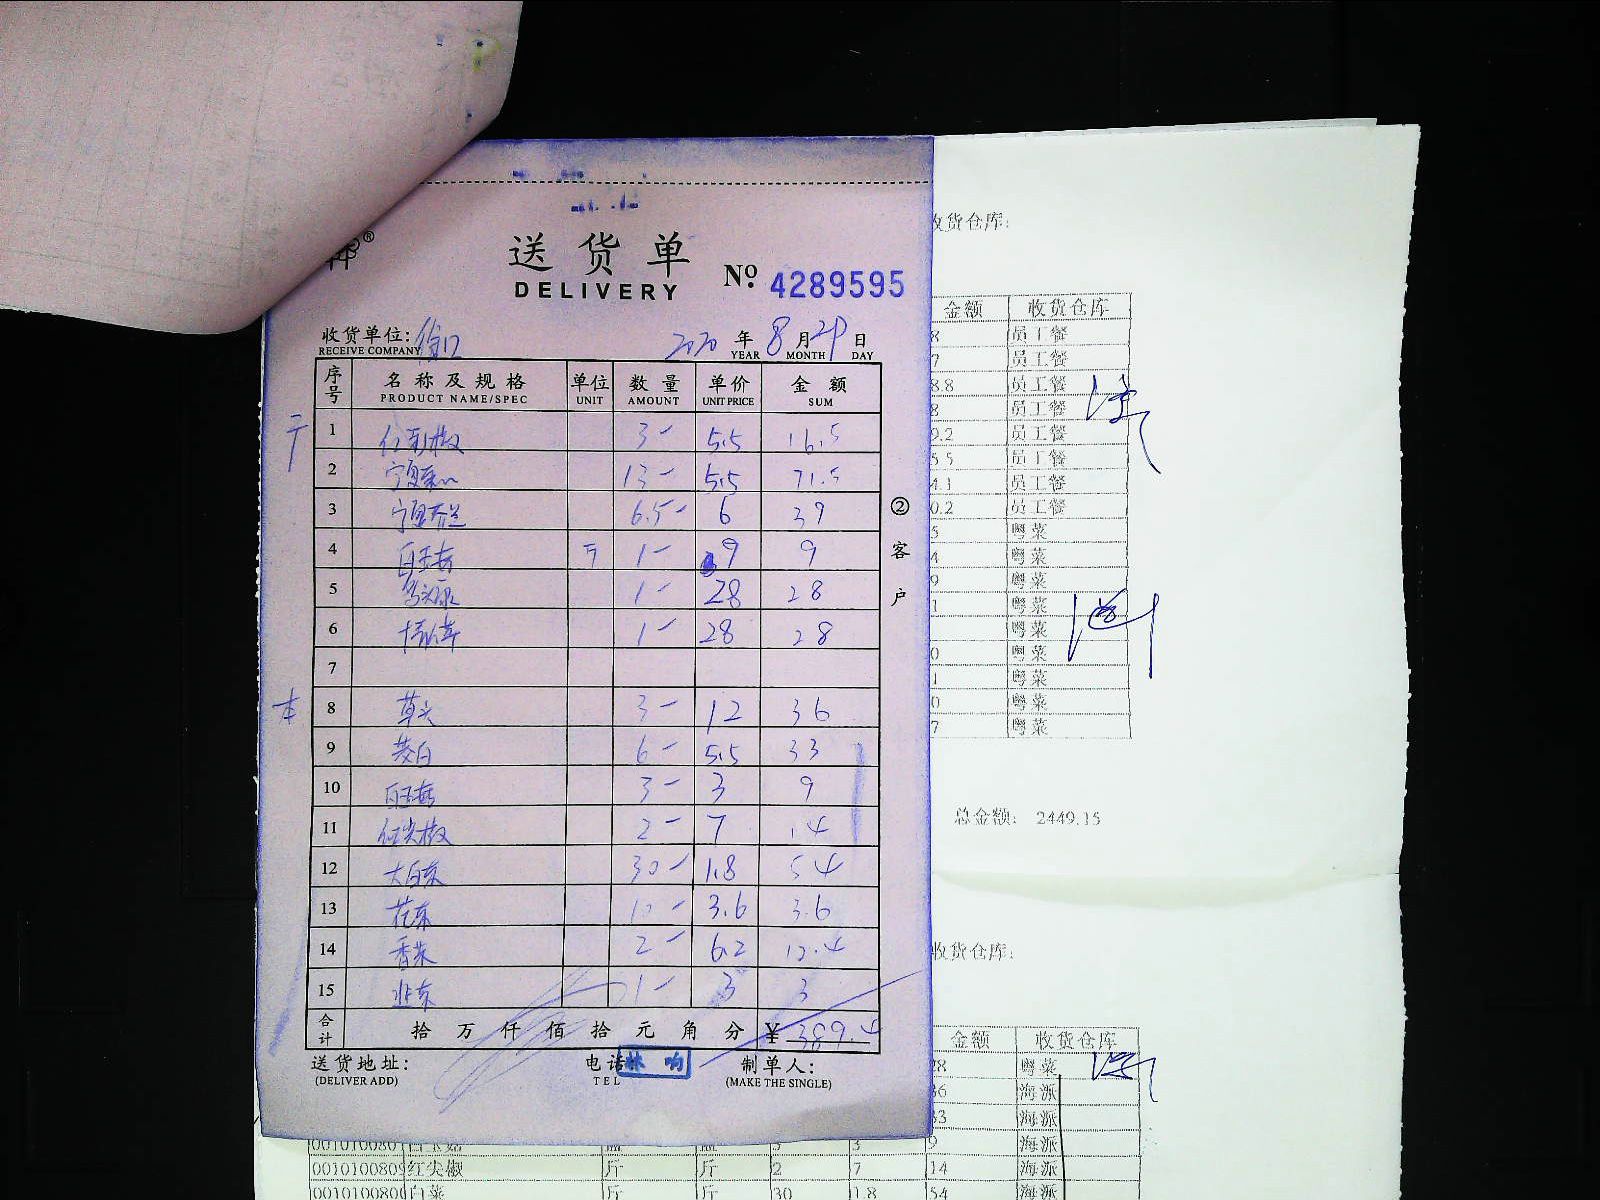 送货单
DELIVERY
No. 4289595
收货单位:
RECEIVE COMPANY
2020 年 8 月 29 日
YEAR MONTH DAY
序号 名称及规格 单位 数量 单价 金额
PRODUCT NAME/SPEC UNIT AMOUNT UNIT PRICE SUM
1 3 5.5 16.5
2 13 5.5 71.5
3 6.5 6 39
4 白玉菇 1 9 9
5 1 28 28
6 1 28 28
7
本 8 草头 3 12 36
9 茭白 6 5.5 33
10 白玉菇 3 3 9
11 红尖椒 2 7 14
12 大白菜 30 1.8 54
13 花菜 10 3.6 3.6
14 香菜 2 6.2 12.4
15 韭菜 1 3 3
合计 拾 万 仟 佰 拾 元 角 分 ¥ 389.4
送货地址:
(DELIVER ADD)
电话
TEL
制单人:
(MAKE THE SINGLE)
②客户
收货仓库:
金额 收货仓库
8 员工餐
7 员工餐
8.8 员工餐
8 员工餐
9.2 员工餐
5.5 员工餐
4.1 员工餐
0.2 员工餐
5 粤菜
4 粤菜
9 粤菜
1 粤菜
粤菜
0 粤菜
1 粤菜
0 粤菜
7 粤菜
总金额: 2449.15
收货仓库:
金额 收货仓库
28 粤菜
36 海派
33 海派
0010100807 白玉菇 3 3 9 海派
0010100809 红尖椒 斤 斤 2 7 14 海派
白菜 斤 斤 30 1.8 54 海派